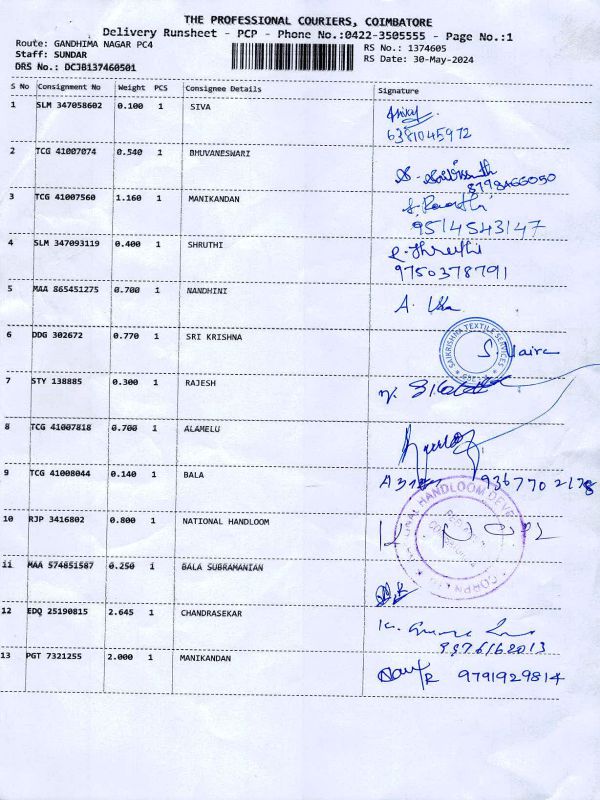 THE PROFESSIONAL COURIERS, COIMBATORE
Delivery Runsheet - PCP - Phone No.:0422-3505555 - Page No.:1
Route: GANDHIMA NAGAR PC4
RS No.: 1374605
Staff: SUNDAR
RS Date: 30-May-2024
DRS No.: DCJB137460501
S No Consignment No Weight PCS Consignee Details Signature
1 SLM 347058602 0.100 1 SIVA
6381045972
2 TCG 41007074 0.540 1 BHUVANESWARI
8798466050
3 TCG 41007560 1.160 1 MANIKANDAN
9514543147
4 SLM 347093119 0.400 1 SHRUTHI R. Shruthi
9750378791
5 MAA 865451275 0.700 1 NANDHINI A.
6 DDG 302672 0.770 1 SRI KRISHNA
SAIKRISHNA TEXTILE SERVICES
7 STY 138885 0.300 1 RAJESH
8 TCG 41007818 0.700 1 ALAMELU
9 TCG 41008044 0.140 1 BALA 9367702178
10 RJP 3416802 0.800 1 NATIONAL HANDLOOM
HANDLOOM DEVE
11 MAA 574851587 0.250 1 BALA SUBRAMANIAN
12 EDQ 25190815 2.645 1 CHANDRASEKAR
13 PGT 7321255 2.000 1 MANIKANDAN 9791929814